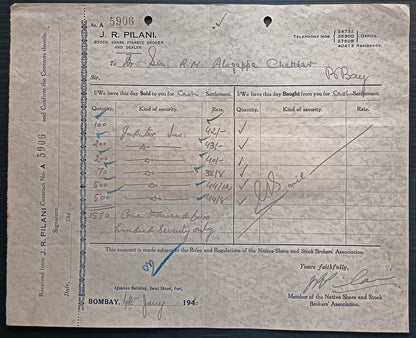 No. A 5906
J. R. PILANI.
STOCK, SHARE, FINANCE BROKER
AND DEALER.
TELEPHONE NOS. 24732 26300 27508 Office.
40413 RESIDENCE.
To Dr Sir, R.M Alagappa Chettiar
Sir, B'Bay
I/We have this day Sold to you for Cash Settlement.
I/We have this day Bought from you for Cash Settlement.
Quantity. Kind of security. Rate. Quantity. Kind of security. Rate.
100 Jupiter Ins. 42/-
200 do 43/-
200 do 40/-
70 do 38/8
500 do 44/12 Nil
500 do 44/8
1570 One thousand five
hundred seventy only
This contract is made subject to the Rules and Regulations of the Native Share and Stock Brokers' Association.
Yours faithfully,
Member of the Native Share and Stock
Brokers' Association.
Dalal Street, Fort,
BOMBAY, 4th Jany 194
Received from J. R. PILANI Contract No. A 5906 and Confirm the Contents thereof.
Signature
194